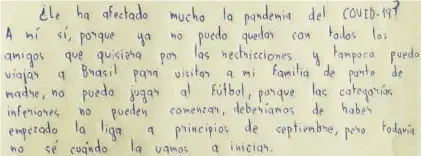 ¿Le ha afectado mucho la pandemia del COVID-19?
A mí sí, porque ya no puedo quedar con todos los
amigos que quisiera por las restricciones y tampoco puedo
viajar a Brasil para visitar a mi familia de parte de
madre, no puedo jugar al fútbol, porque las categorías
inferiores no pueden comenzar, deberíamos de haber
empezado la liga a principios de ceptiembre, pero todavía
no sé cuándo la vamos a iniciar.